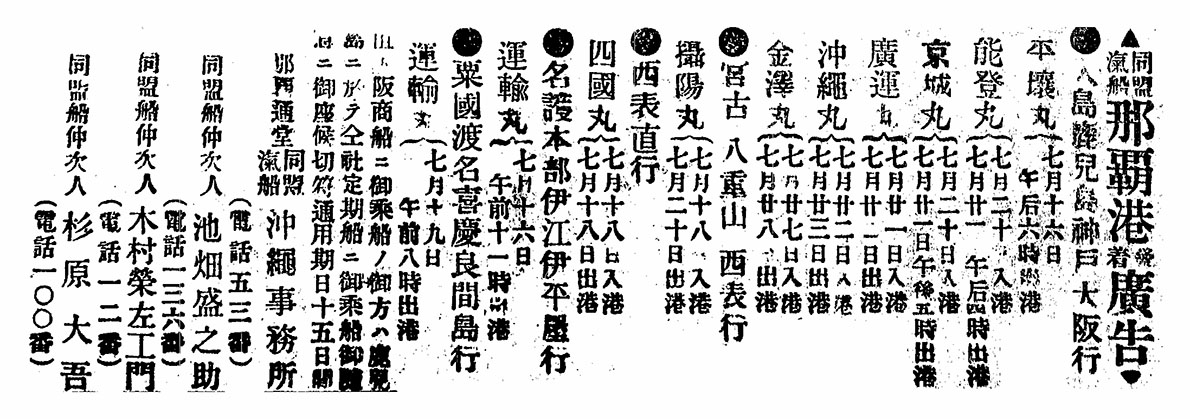 ▲同盟汽船那覇港發着廣告▼
●大島鹿兒島神戸大阪行
平壤丸 七月十六日 午后六時出港
能登丸 七月二十日入港 七月廿一日午后四時出港
京城丸 七月二十日入港 七月廿一日午後五時出港
廣運丸 七月廿一日入港 七月廿二日出港
沖繩丸 七月廿二日入港 七月廿三日出港
金澤丸 七月廿七日入港 七月廿八日出港
●宮古 八重山 西表行
攝陽丸 七月十八日入港 七月二十日出港
●西表直行
四國丸 七月十八日入港 七月十八日出港
●名護本部伊江伊平屋行
運輸丸 七月十六日 午前十一時出港
●粟國渡名喜慶良間島行
運輸丸 七月十九日 午前八時出港
阪商船ニ御乘船ノ御方ハ鹿兒
島ニ於テ仝社定期船ニ御乘船御
ニ御座候切符通用期日十五日間
那覇通堂 同盟汽船 沖繩事務所
(電話五三番)
同盟船仲次人 池畑盛之助
(電話一三六番)
同盟船仲次人 木村榮左工門
(電話一二番)
同盟船仲次人 杉原大吾
(電話一〇〇番)